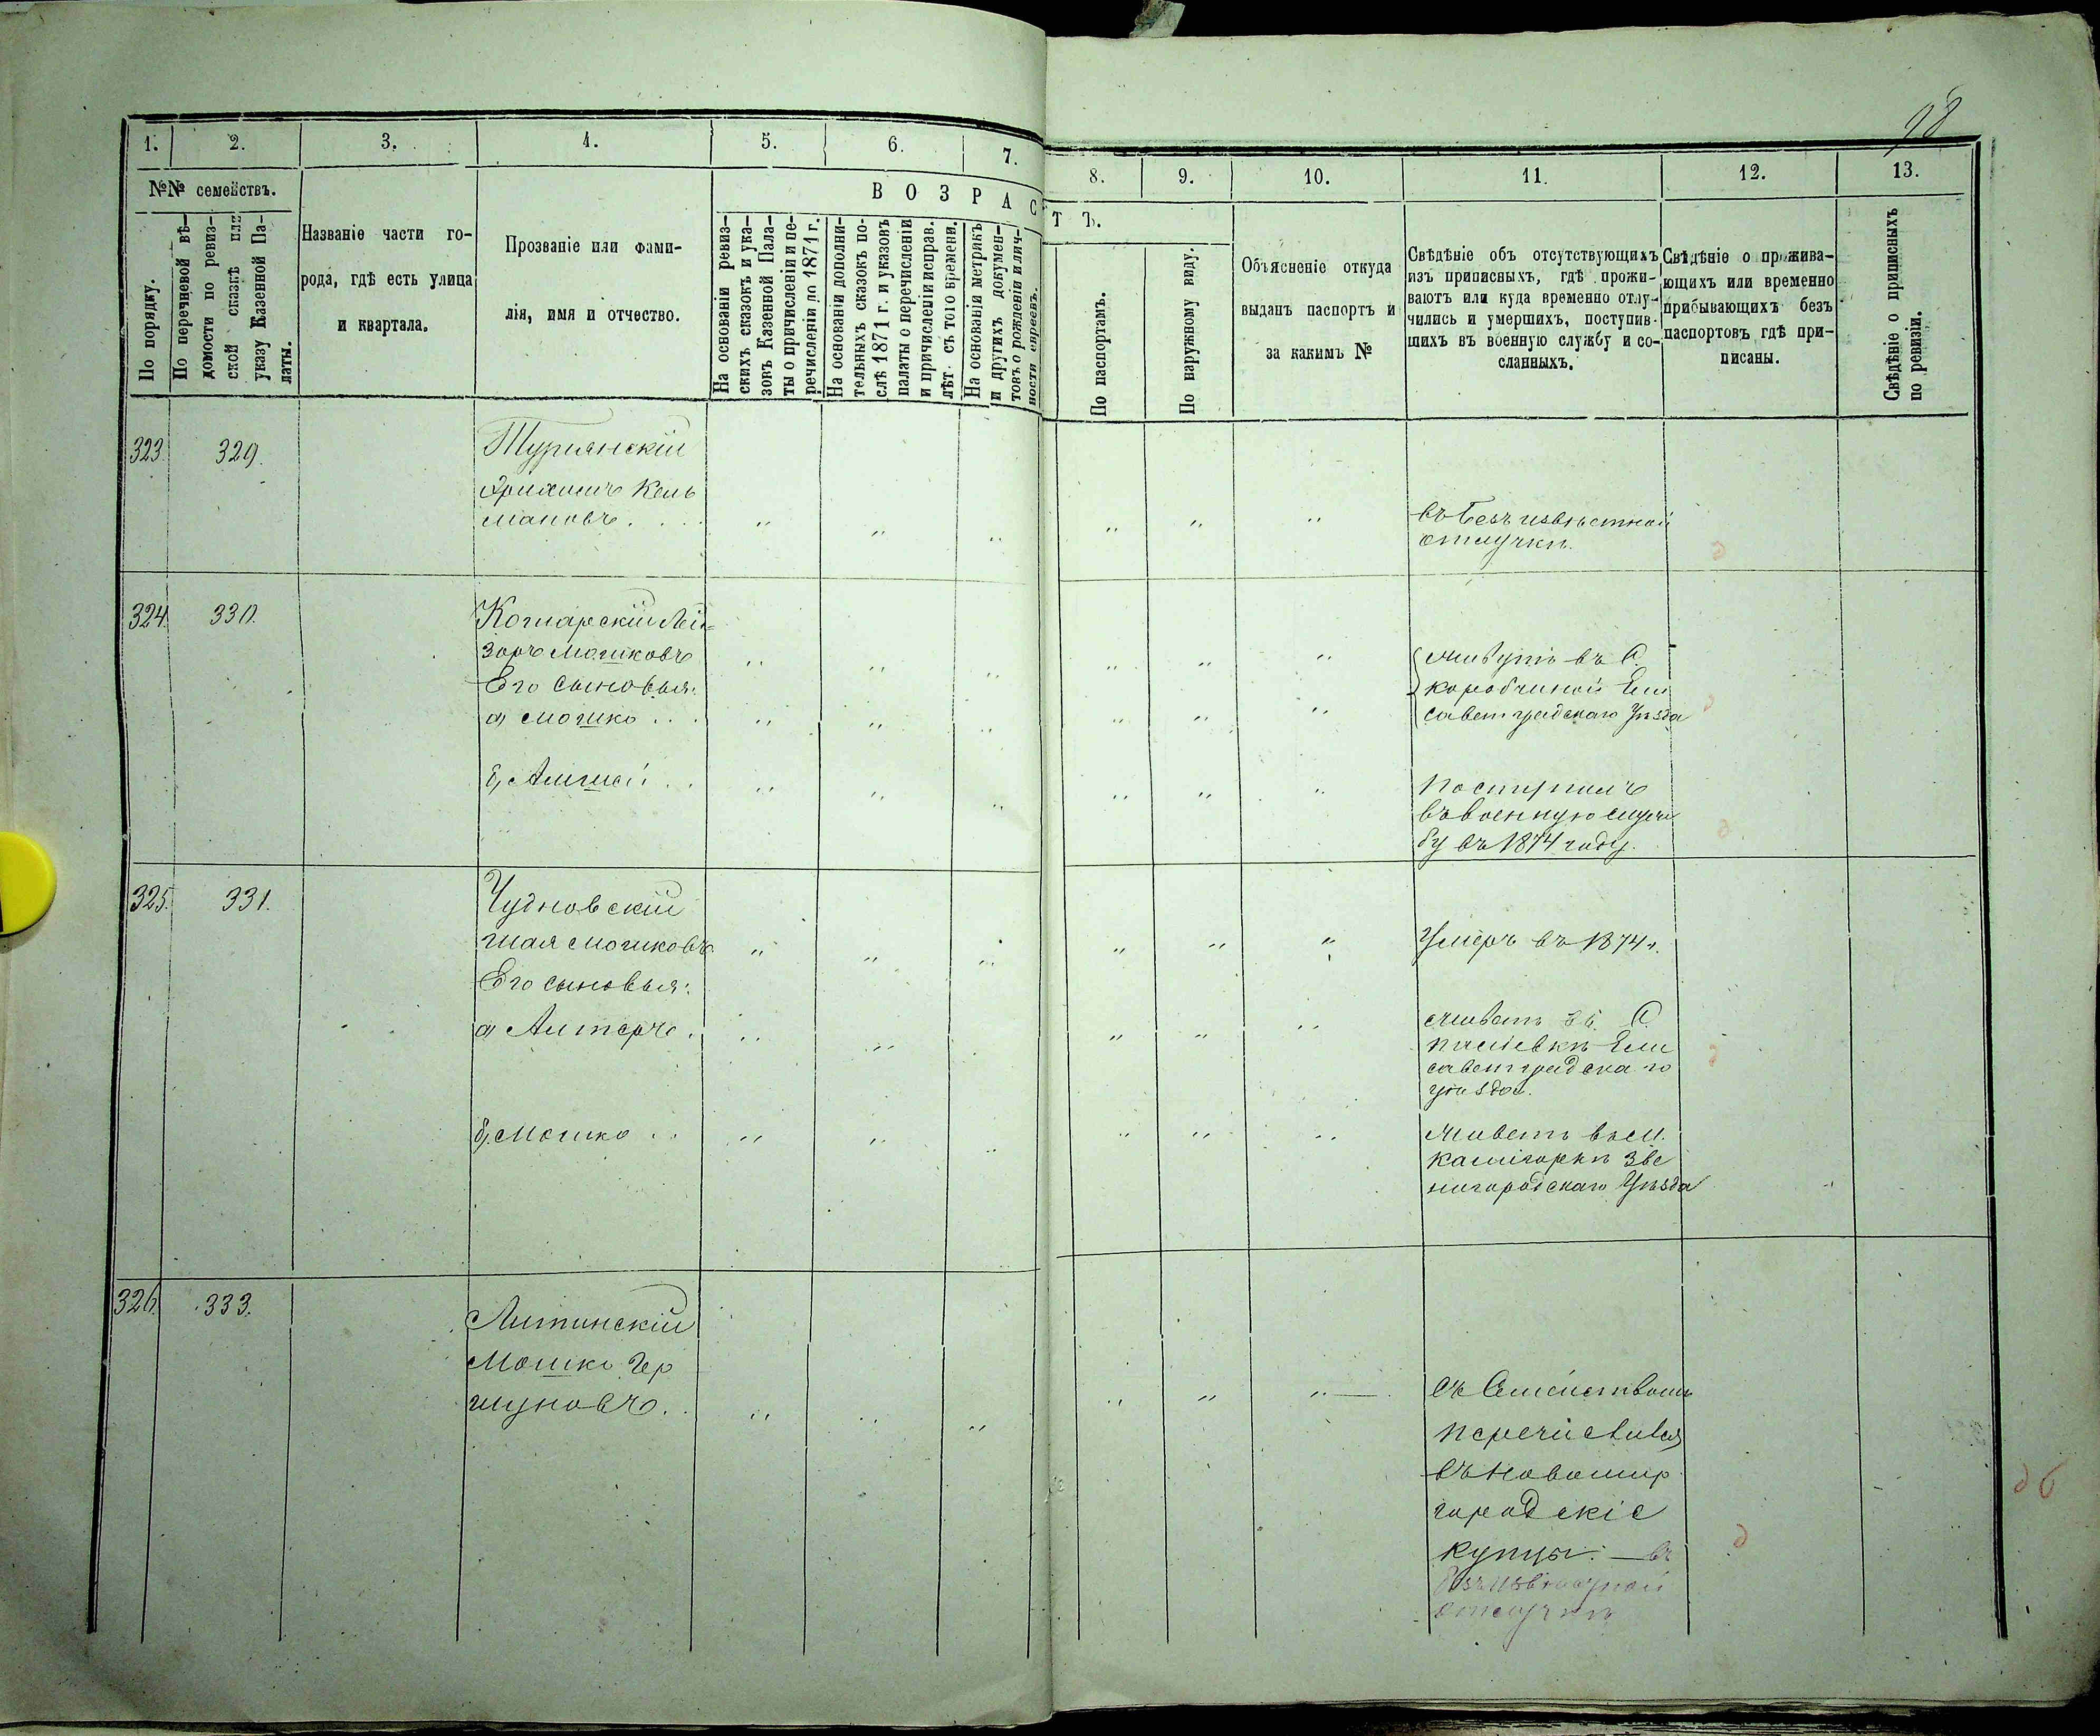 98
1. 2. 3. 4. 5. 6. 7. 8. 9. 10. 11. 12. 13.
№№ семействъ.
В О З Р А С Т Ъ.
По порядку.
По перечневой вѣ-
домости по ревиз-
ской сказкѣ или
указу Казенной Па-
латы.
Названіе части го-
рода, гдѣ есть улица
и квартала.
Прозваніе или фами-
лія, имя и отчество.
На основаніи ревиз-
скихъ сказокъ и ука-
зовъ Казенной Пала-
ты о причисленіи и пе-
речисленіи до 1871 г.
На основаніи дополни-
тельныхъ сказокъ по-
слѣ 1871 г. и указовъ
палаты о перечисленіи
и причисленіи исправ.
лѣт. съ того времени.
На основаніи метрикъ
и другихъ докумен-
товъ о рожденіи и лич-
ности евреевъ.
По паспортамъ.
По наружному виду.
Объясненіе откуда
выданъ паспортъ и
за какимъ №
Свѣдѣніе объ отсутствующихъ
изъ приписныхъ, гдѣ прожи-
ваютъ или куда временно отлу-
чились и умершихъ, поступив-
шихъ въ военную службу и со-
сланныхъ.
Свѣдѣніе о прожива-
ющихъ или временно
прибывающихъ безъ
паспортовъ гдѣ при-
писаны.
Свѣдѣніе о приписныхъ
по ревизіи.
323. 329.
Турианскій
Кель
мановъ....
въ безъизвѣстной
отлучкѣ.
324. 330.
Котлярскій Лей-
зоръ Мошковъ
Его сыновья:
а, Мошко...
Живутъ въ С.
коробчиной Ели
саветградскаго Уѣзда
б, Аншей...
Поступилъ
въ военную служ
бу въ 1874 году.
325. 331.
Чудновскій
Шая Мошковъ
Умеръ въ 1874 г.
Его сыновья:
а, Алтеръ.
Живетъ въ С.
Ели
саветградскаго
уѣзда.
б, Мошко..
Живетъ въ М.
Калигоркѣ Зве
нигородскаго Уѣзда
326. 333.
Литинскій
Мошко Гер
шуновъ..
Съ Семействомъ
перечислился
въ Новомир
городскіе
купцы. — въ
безъизвѣстной
отлучкѣ